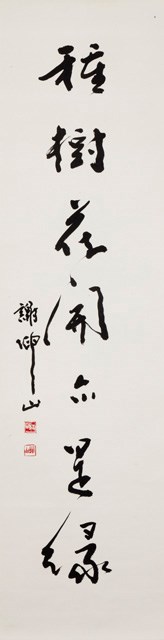 種樹花開亦是緣
謝仰山